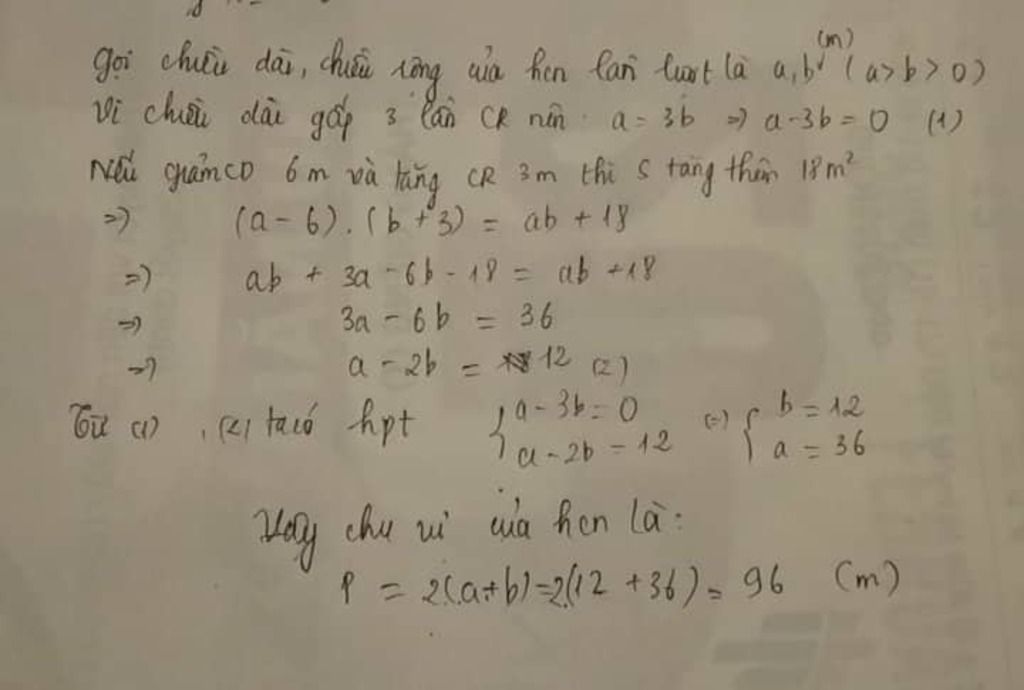 Gọi chiều dài, chiều rộng của hcn lần lượt là a, b (m) (a > b > 0)
Vì chiều dài gấp 3 lần CR nên a = 3b => a - 3b = 0 (1)
Nếu giảm CD 6m và tăng CR 3m thì S tăng thêm 18m²
=> (a - 6).(b + 3) = ab + 18
=> ab + 3a - 6b - 18 = ab + 18
=> 3a - 6b = 36
=> a - 2b = 12 (2)
Từ (1), (2) ta có hpt { a - 3b = 0 (=) { b = 12
a - 2b = 12 a = 36
Vậy chu vi của hcn là:
P = 2(a+b) = 2(12 + 36) = 96 (m)